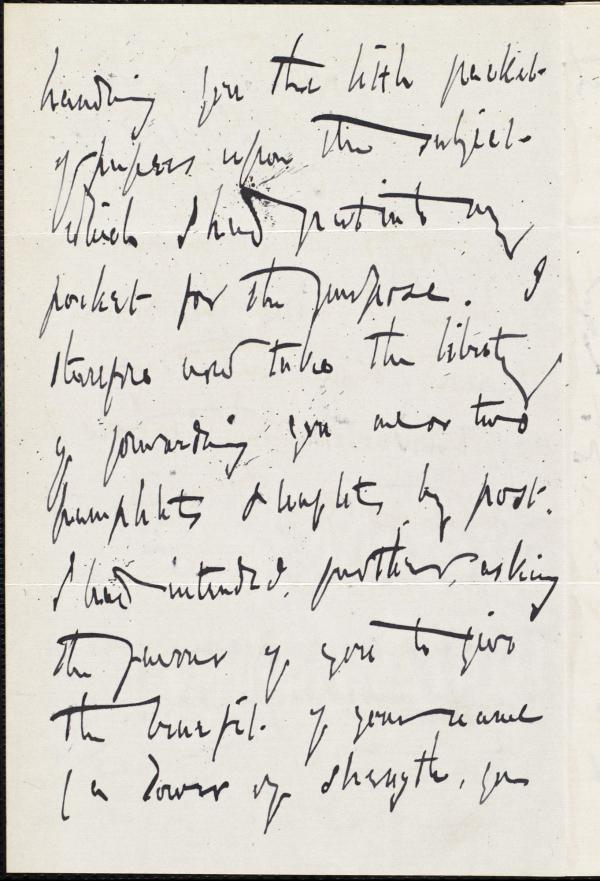 handing you the little packet
of papers upon the subject
which I had put into my
pocket for the purpose. I
therefore now take the liberty
of forwarding you one or two
pamphlets & leaflets by post.
I had intended, further, asking
the favour of you to give
the benefit of your name
(a tower of strength, you